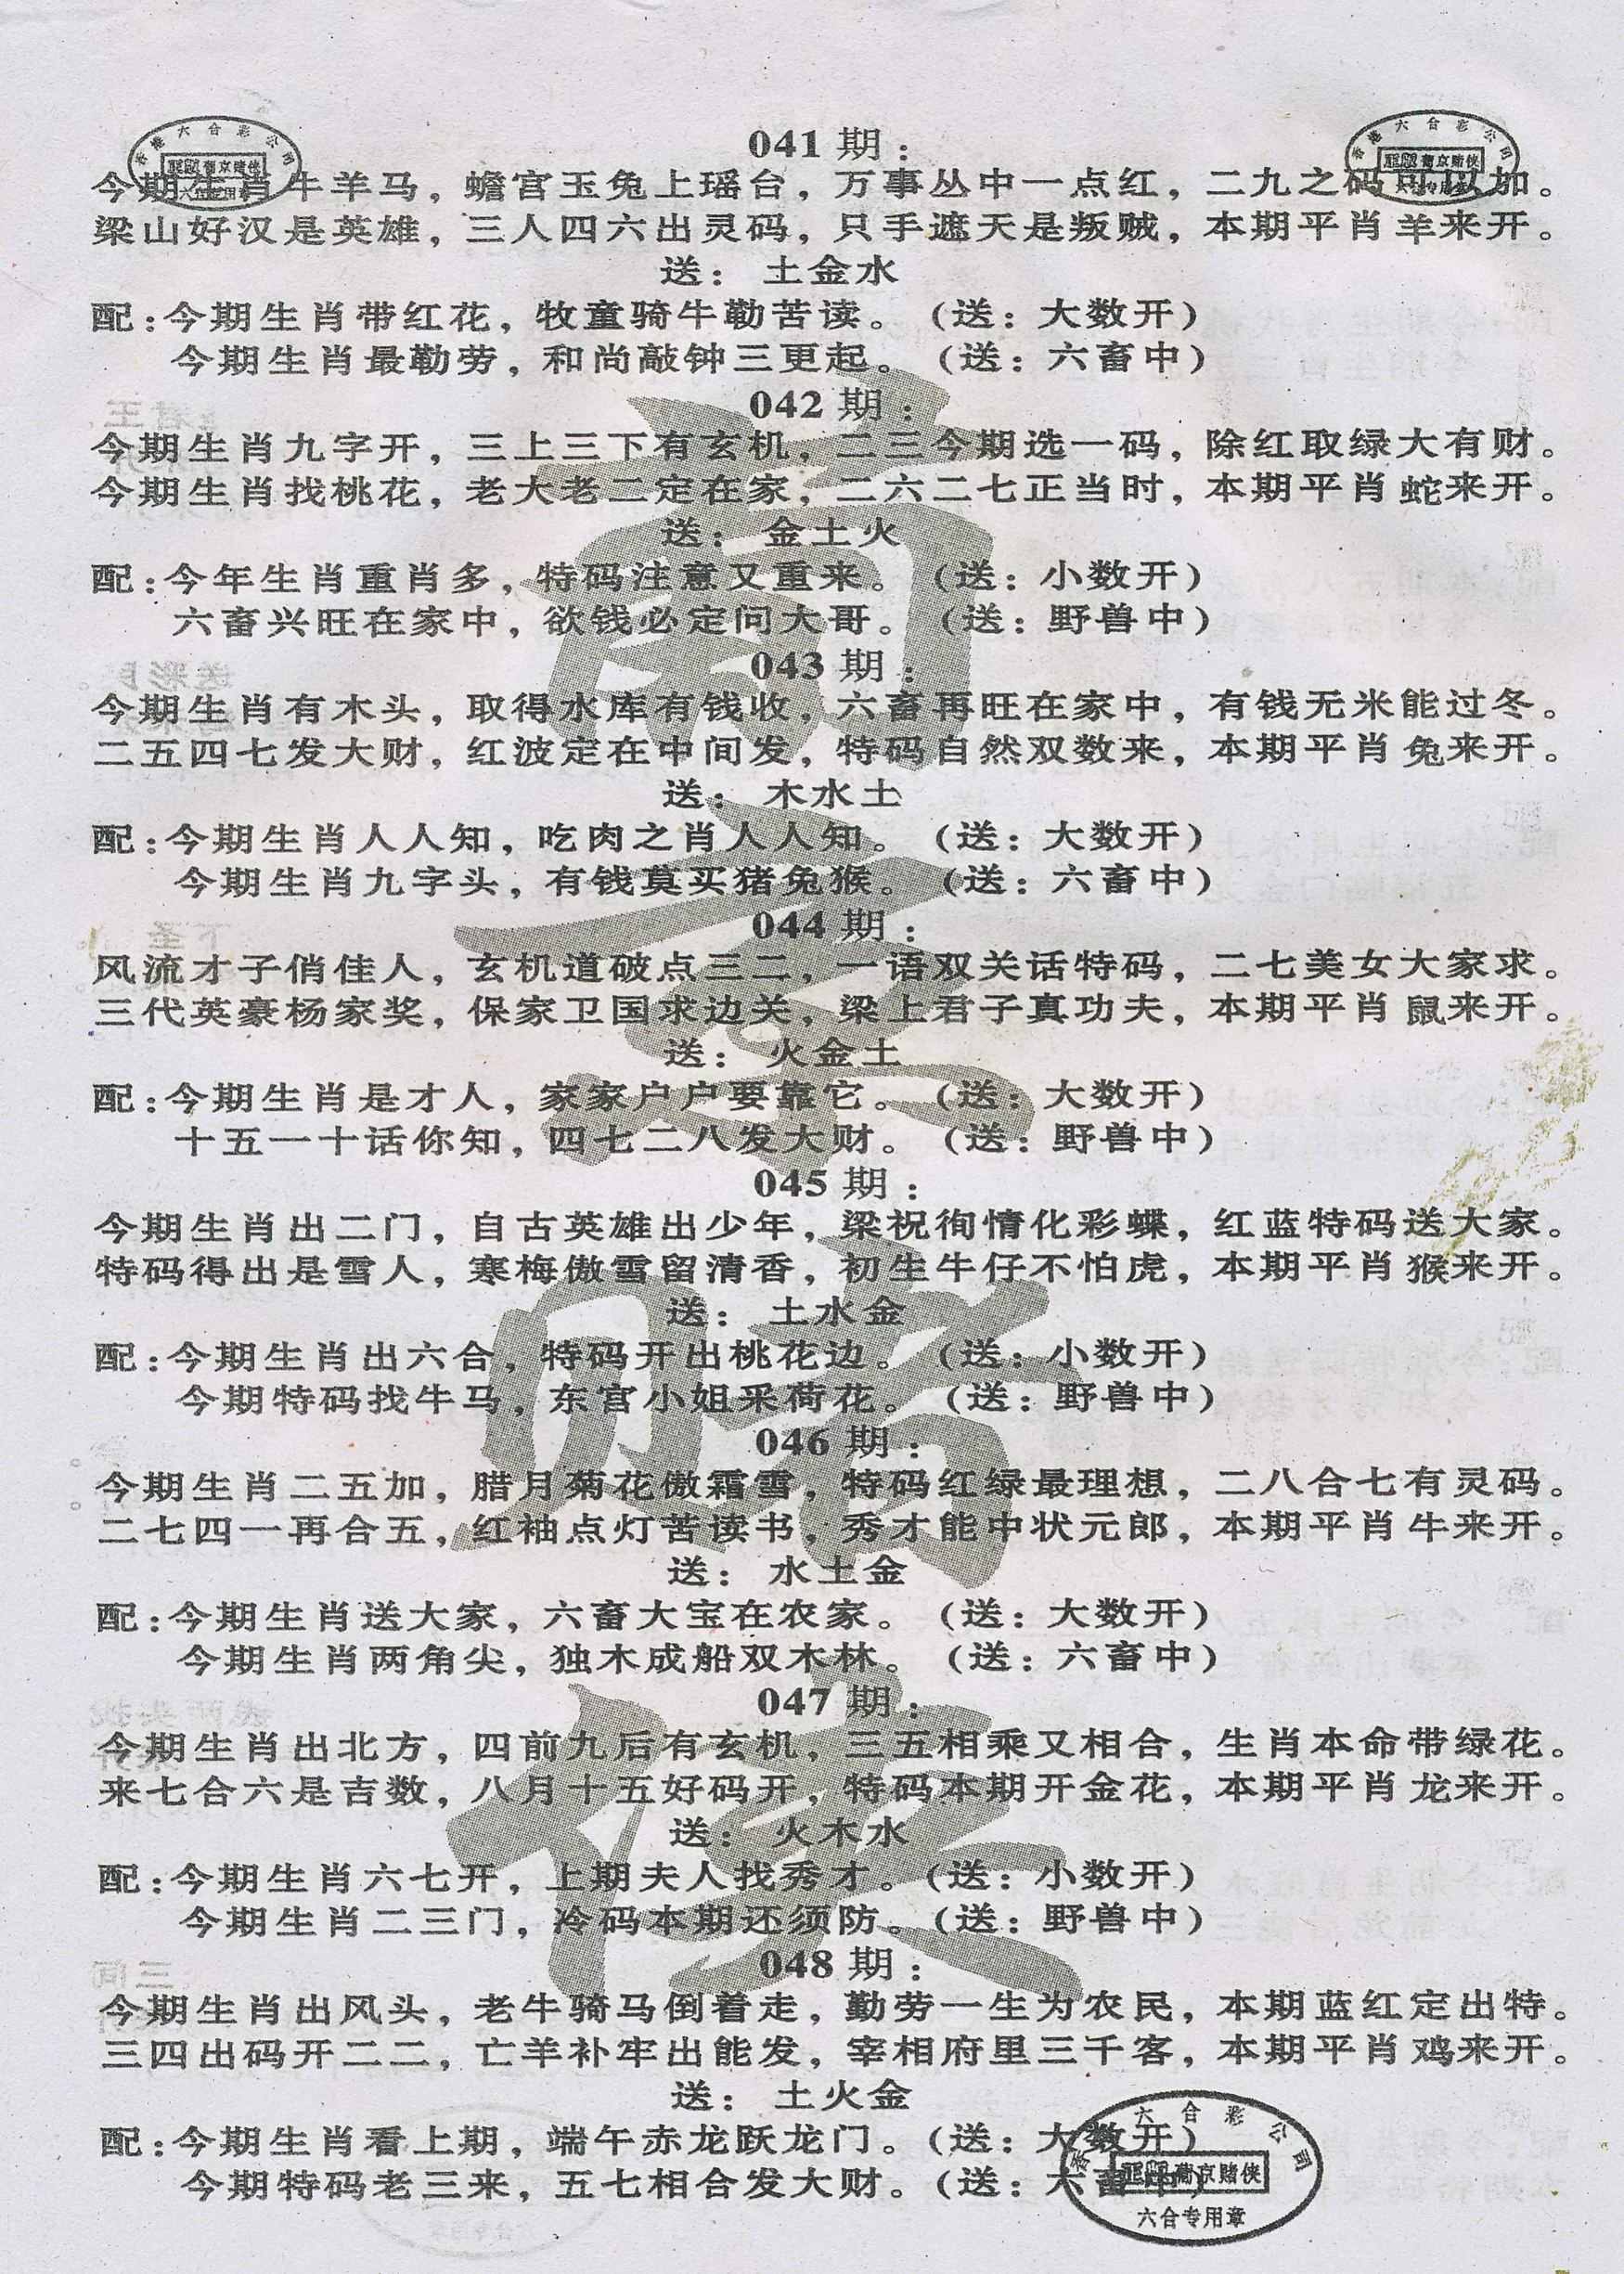 041 期：
今期生肖牛羊马，蟾宫玉兔上瑶台，万事丛中一点红，二九之码可以加。
梁山好汉是英雄，三人四六出灵码，只手遮天是叛贼，本期平肖羊来开。
送： 土金水
配：今期生肖带红花，牧童骑牛勤苦读。（送：大数开）
今期生肖最勤劳，和尚敲钟三更起。（送：六畜中）
042 期：
今期生肖九字开，三上三下有玄机，二三今期选一码，除红取绿大有财。
今期生肖找桃花，老大老二定在家，二六二七正当时，本期平肖蛇来开。
送： 金土火
配：今年生肖重肖多，特码注意又重来。（送：小数开）
六畜兴旺在家中，欲钱必定问大哥。（送：野兽中）
043 期：
今期生肖有木头，取得水库有钱收，六畜再旺在家中，有钱无米能过冬。
二五四七发大财，红波定在中间发，特码自然双数来，本期平肖兔来开。
送： 木水土
配：今期生肖人人知，吃肉之肖人人知。（送：大数开）
今期生肖九字头，有钱莫买猪兔猴。（送：六畜中）
044 期：
风流才子俏佳人，玄机道破点三二，一语双关话特码，二七美女大家求。
三代英豪杨家奖，保家卫国求边关，梁上君子真功夫，本期平肖鼠来开。
送： 火金土
配：今期生肖是才人，家家户户要靠它。（送：大数开）
十五一十话你知，四七二八发大财。（送：野兽中）
045 期：
今期生肖出二门，自古英雄出少年，梁祝徇情化彩蝶，红蓝特码送大家。
特码得出是雪人，寒梅傲雪留清香，初生牛仔不怕虎，本期平肖猴来开。
送： 土水金
配：今期生肖出六合，特码开出桃花边。（送：小数开）
今期特码找牛马，东宫小姐采荷花。（送：野兽中）
046 期：
今期生肖二五加，腊月菊花傲霜雪，特码红绿最理想，二八合七有灵码。
二七四一再合五，红袖点灯苦读书，秀才能中状元郎，本期平肖牛来开。
送： 水土金
配：今期生肖送大家，六畜大宝在农家。（送：大数开）
今期生肖两角尖，独木成船双木林。（送：六畜中）
047 期：
今期生肖出北方，四前九后有玄机，三五相乘又相合，生肖本命带绿花。
来七合六是吉数，八月十五好码开，特码本期开金花，本期平肖龙来开。
送： 火木水
配：今期生肖六七开，上期夫人找秀才。（送：小数开）
今期生肖二三门，冷码本期还须防。（送：野兽中）
048 期：
今期生肖出风头，老牛骑马倒着走，勤劳一生为农民，本期蓝红定出特。
三四出码开二二，亡羊补牢出能发，宰相府里三千客，本期平肖鸡来开。
送： 土火金
配：今期生肖看上期，端午赤龙跃龙门。（送：大数开）
今期特码老三来，五七相合发大财。（送：六畜中）
香港六合彩公司
葡京赌侠
六合专用章